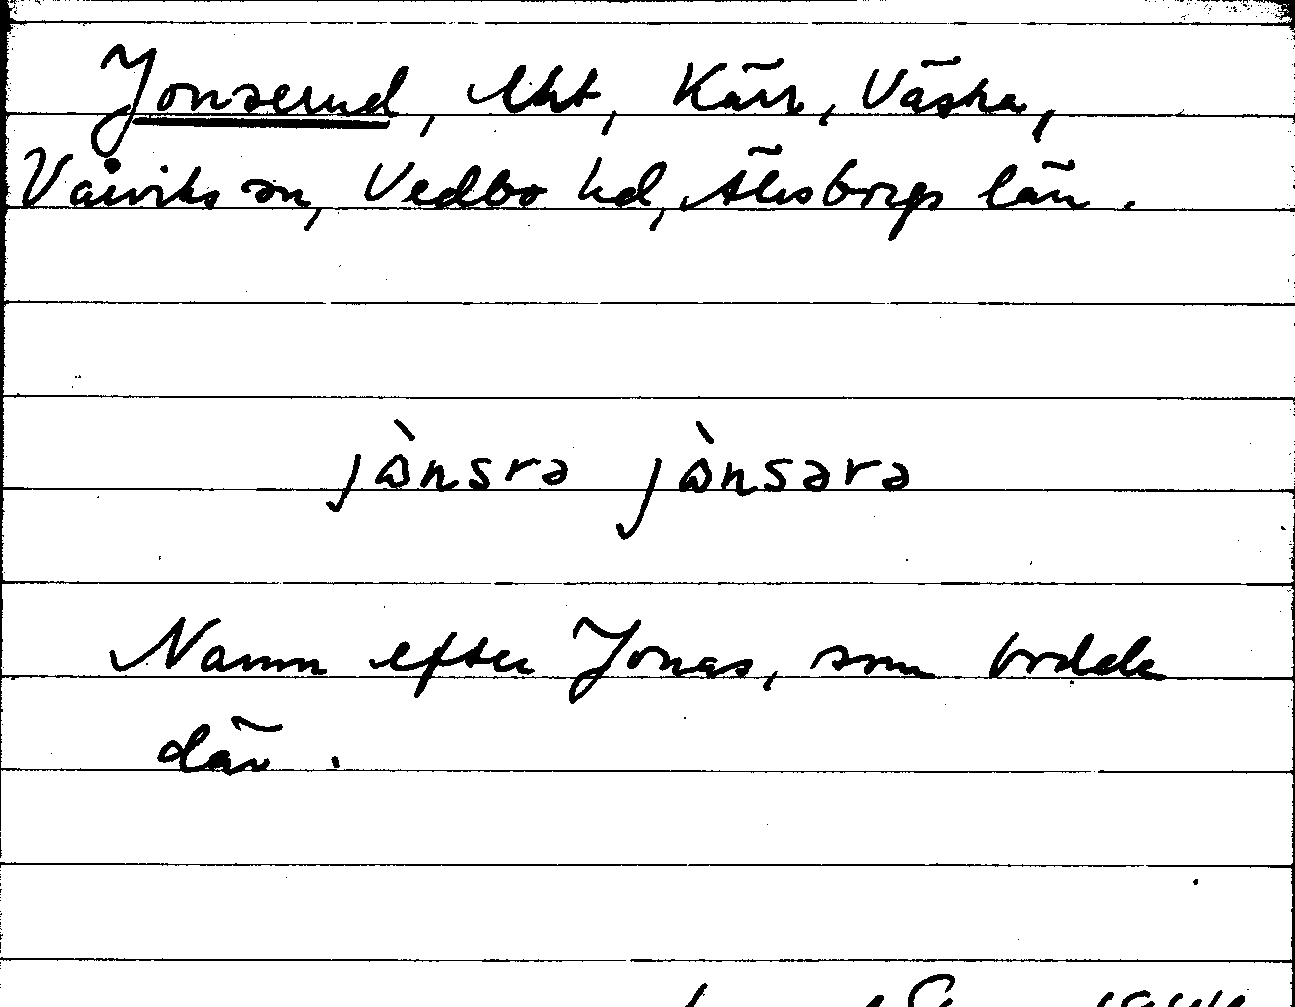 Jonserud, lht, Kärr, Västra,
Vårviks sn, Vedbo hd, Älvsborgs län.
jònsrə jònsərə
Namn efter Jonas, som bodde
där.